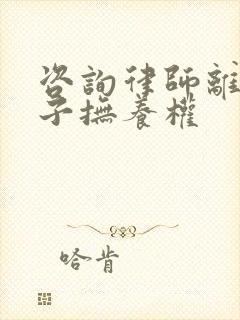 咨詢律師離
子撫養權
哈肯